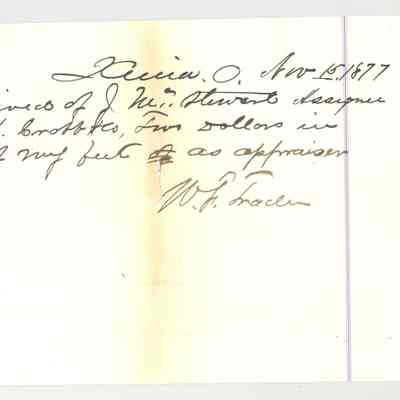 Xenia. O. Nov 15, 1877
ived of J. Mc. Stewart Assignee
Crabb &Co, Two Dollars in
my feet as appraiser
W. F. Trader